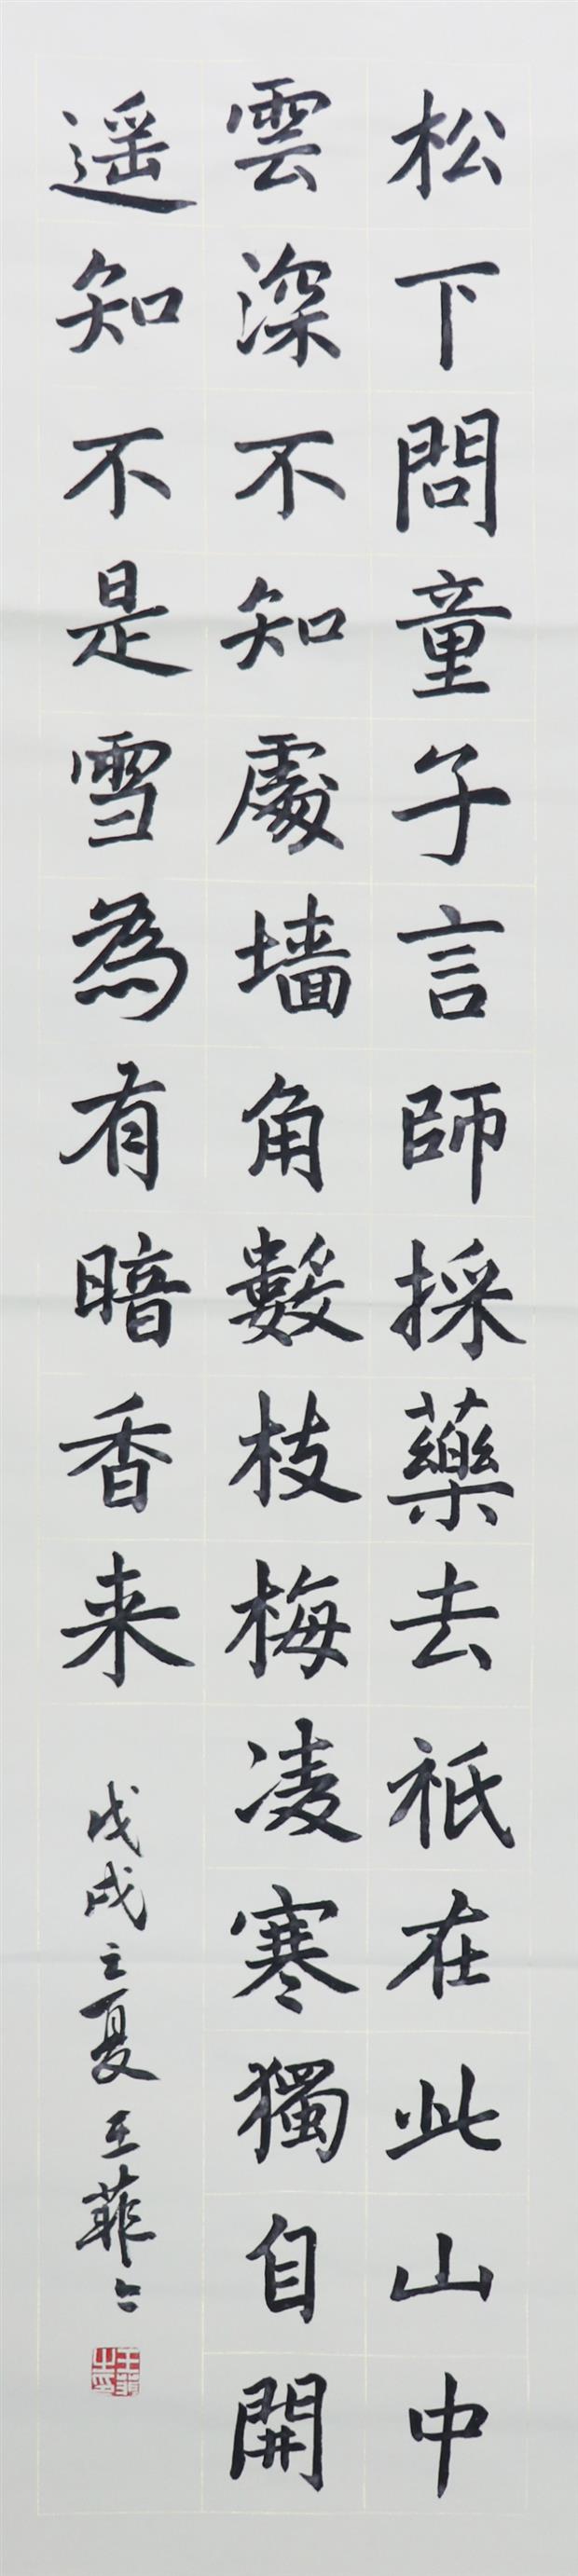 松下問童子言師採藥去祇在此山中
雲深不知處墻角數枝梅凌寒獨自開
遥知不是雪為有暗香来
戊戌立夏王菲